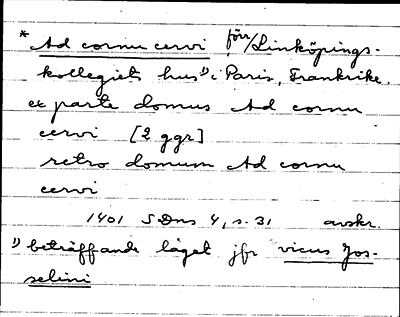 * Ad cornu cervi förr/Linköpings-
kollegiets hus¹⁾ i Paris, Frankrike.
ex parte domus Ad cornu
cervi [2 ggr]
retro domum Ad cornu
cervi
1401 SDns 4, s. 31 avskr.
¹⁾ beträffande läget jfr vicus Jos-
selini